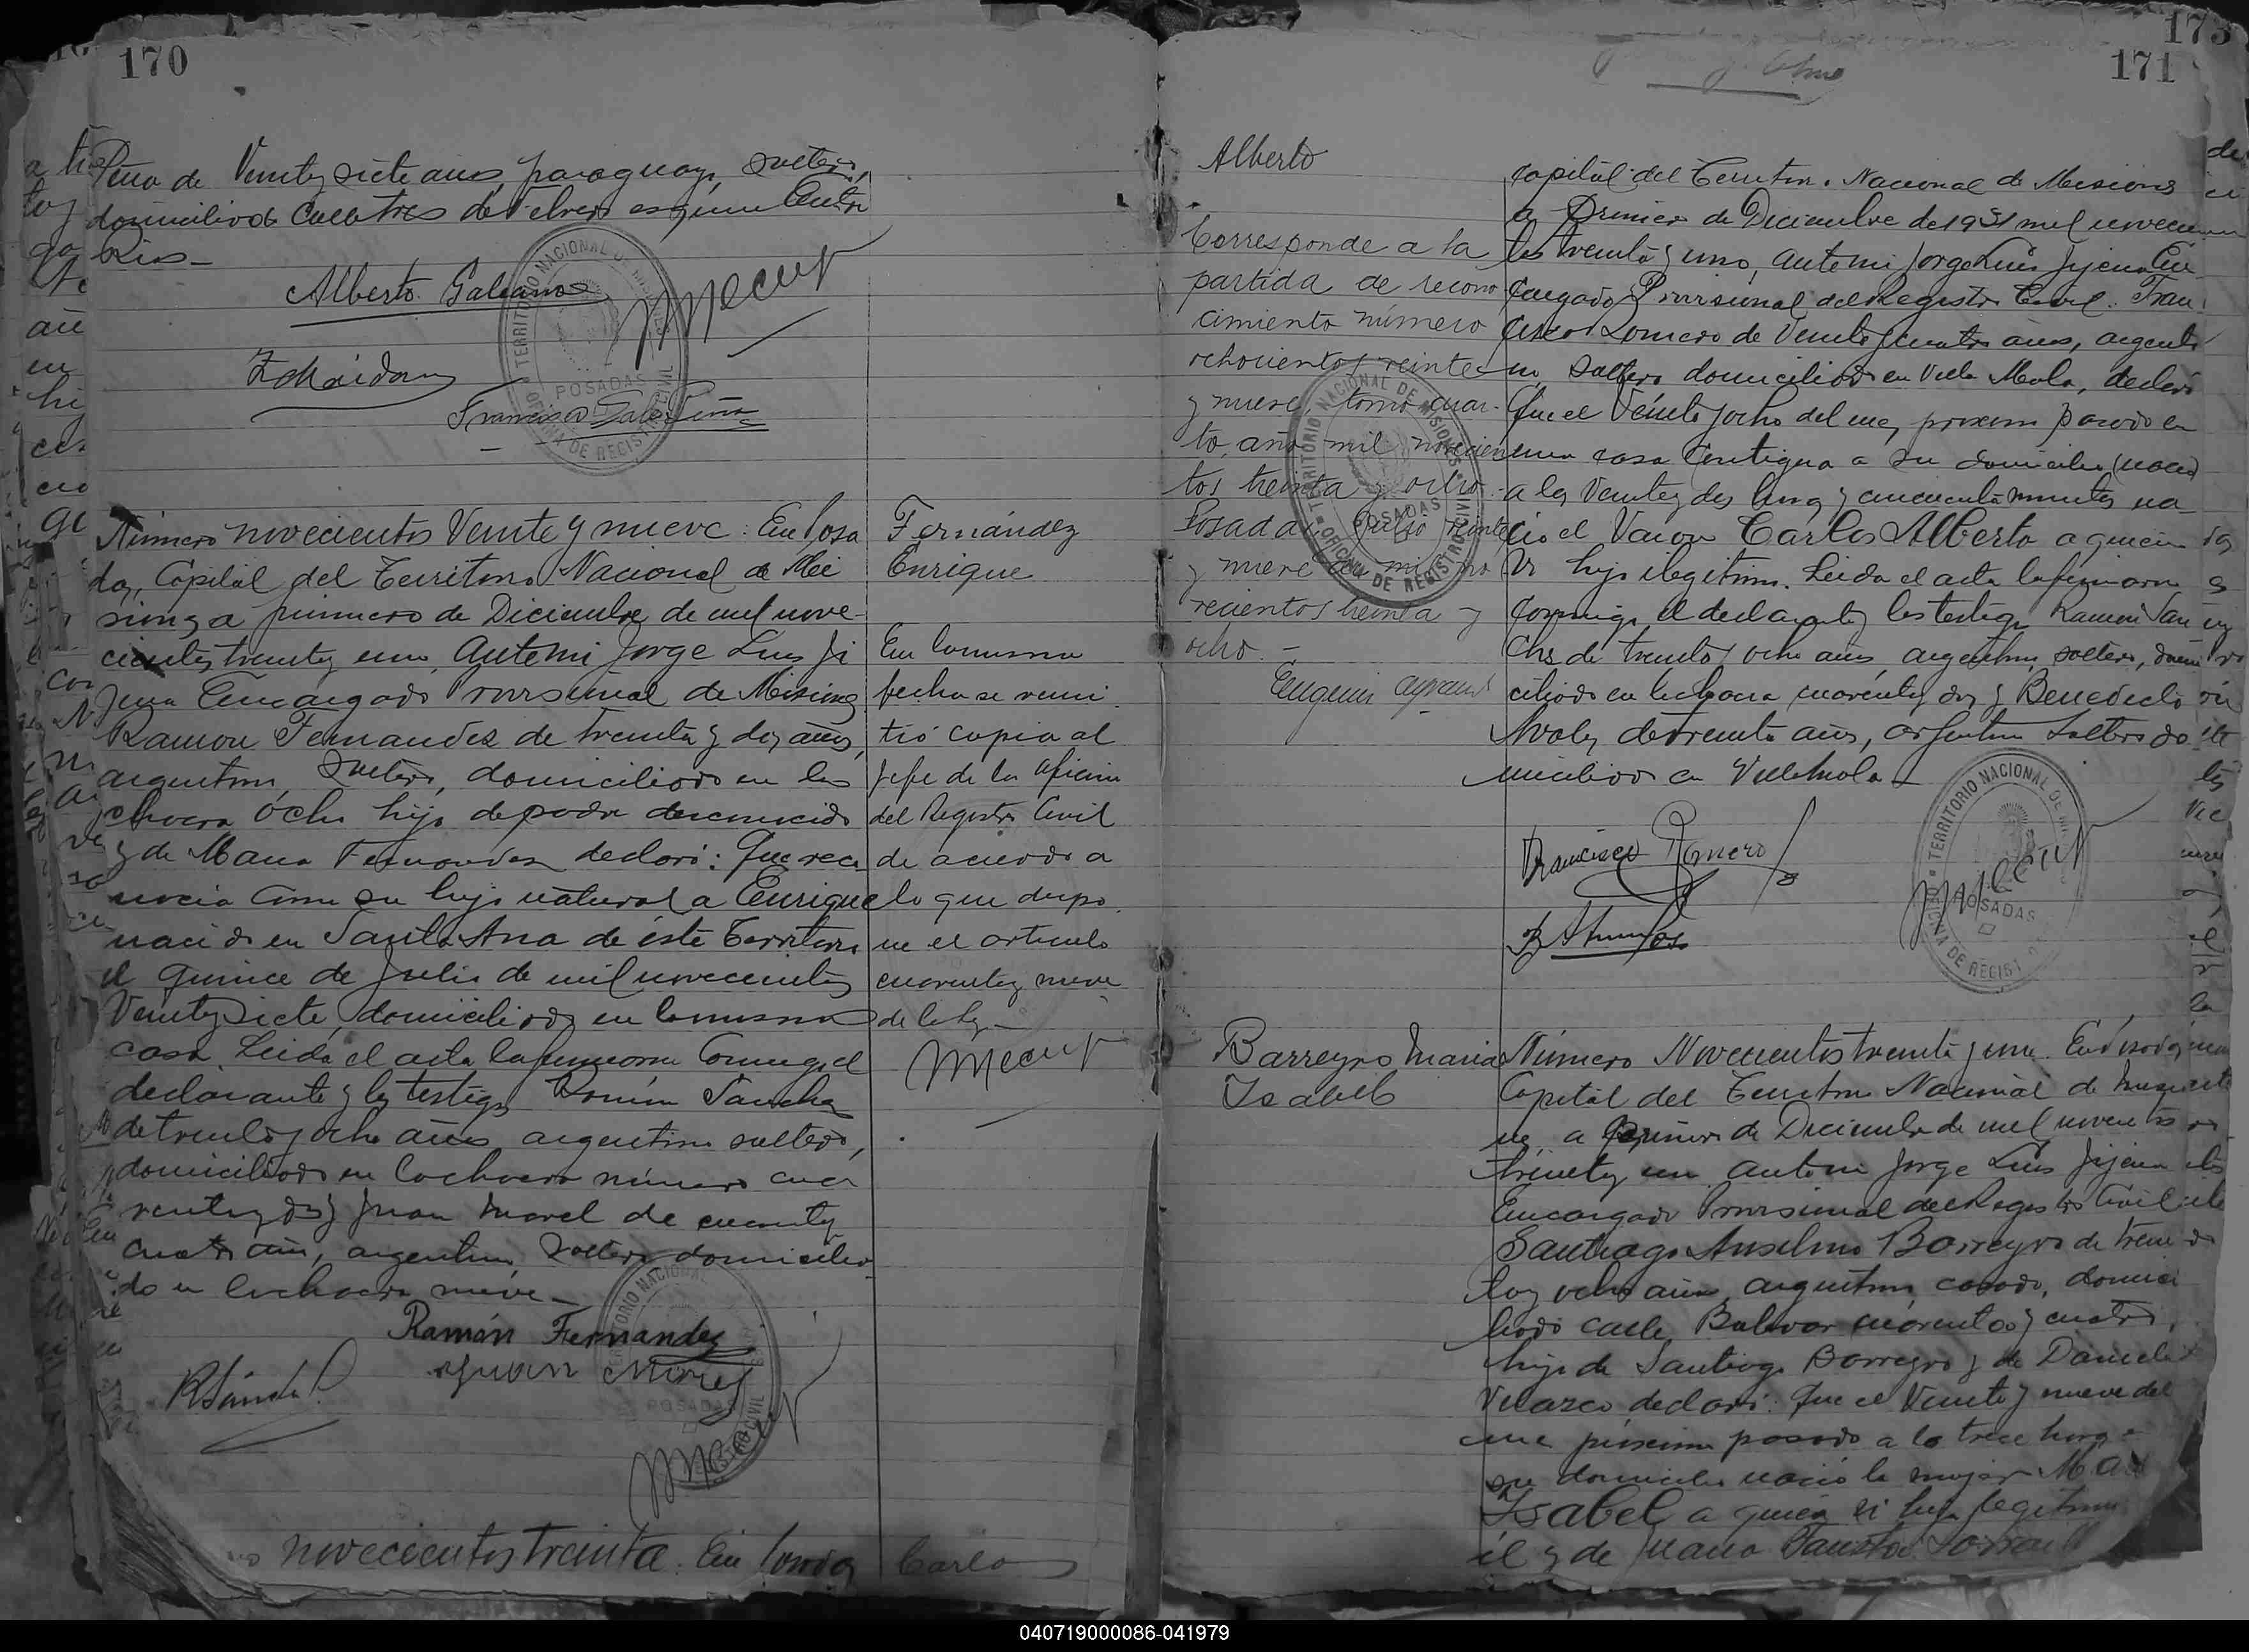 170
Peña de Veinte y siete años, paraguayo, soltero,
domiciliado Calle tres de Febrero esquina Entre
Rios—
Alberto Galeano
Francisco Gale Peña
Número novecientos Veinte y nueve: En Posa
das, Capital del Territorio Nacional de Mi
siones a primero de Diciembre de mil nove-
cientos treinta y uno, Ante mi Jorge Luis Ji
jena Encargado Provisional de Misiones
Ramon Fernandez de treinta y dos años,
argentino, soltero, domiciliado en la
chacra ócho hijo de padre desconocido
y de Maria Fernandez declaró: Que reco
nocia como su hijo natural a Enrique
nacido en Santa Ana de éste Territorio
el quince de Julio de mil novecientos
Veinte y siete, domiciliado en la misma
casa. Leida el acta la firmaron conmigo el
declarante y los testigos Ramón Sanchez
de treinta y ocho años argentino soltero,
domiciliado en la chacra número cua
renta y dos y Juan Morel de cuarenta y
cuatro años, argentino, soltero domicilia
do en la chacra nueve—
Ramón Fernandez
Juan Morel
RSánchez
Fernández
Enrique
En la misma
fecha se remi
tió copia al
Jefe de la oficina
del Registro Civil
de acuerdo a
lo que dispo
ne el articulo
cuarenta y nueve
de la ley—
novecientos treinta. En Posadas
Carlos
TERRITORIO NACIONAL DE MISIONES
POSADAS
OFICINA DE REGISTRO CIVIL
173
171
Alberto
Corresponde a la
partida de recono
cimiento número
ochocientos veinte
y nueve, tomo cuar-
to, año mil novecien
tos treinta y ocho.
Posadas, Julio veinte
y nueve de mil no
vecientos treinta y
ocho.—
capital del Territorio Nacional de Misiones
a Primero de Diciembre de 1931 mil novecien
tos treinta y uno, ante mi Jorge Luis Jijena En
cargado Provisional del Registro Civil. Fran
cisco Romero de Veinte y cuatro años, argenti
no soltero domiciliado en Villa Mola, declaró
Que el Veinte y ocho del mes proximo pasado en
una casa Contigua a su domicilio (nació)
a las Veinte y dos horas y cincuenta minutos na
ció el Varon Carlos Alberto a quien
hijo ilegitimo. Leida el acta la firmaron
conmigo el declarante y los testigos Ramon San
chez de treinta y ocho años, argentino, soltero, domi
ciliado en la chacra cuarenta y dos y Benedicto
de treinta años, argentino soltero do
miciliado en Villa Mola—
Francisco Romero
TERRITORIO NACIONAL DE MISIONES
POSADAS
OFICINA DE REGISTRO CIVIL
Barreyro Maria
Isabel
Número Novecientos treinta y uno. En Posadas,
Capital del Territorio Nacional de Misio
nes, a primero de Diciembre de mil novecientos
treinta y uno ante mi Jorge Luis Jijena
Encargado Provisional del Registro Civil
Santiago Anselmo Barreyro de trein
ta y ocho años, argentino, casado, domici
liado calle Bolivar cuarenta y cuatro,
hijo de Santiago Barreyro y de Daniela
Velazco declaró: Que el Veinte y nueve del
mes próximo pasado a las trece horas en
su domicilio nació la mujer Maria
Isabel a quien es hija legitima
él y de Juana Fausta
040719000086-041979